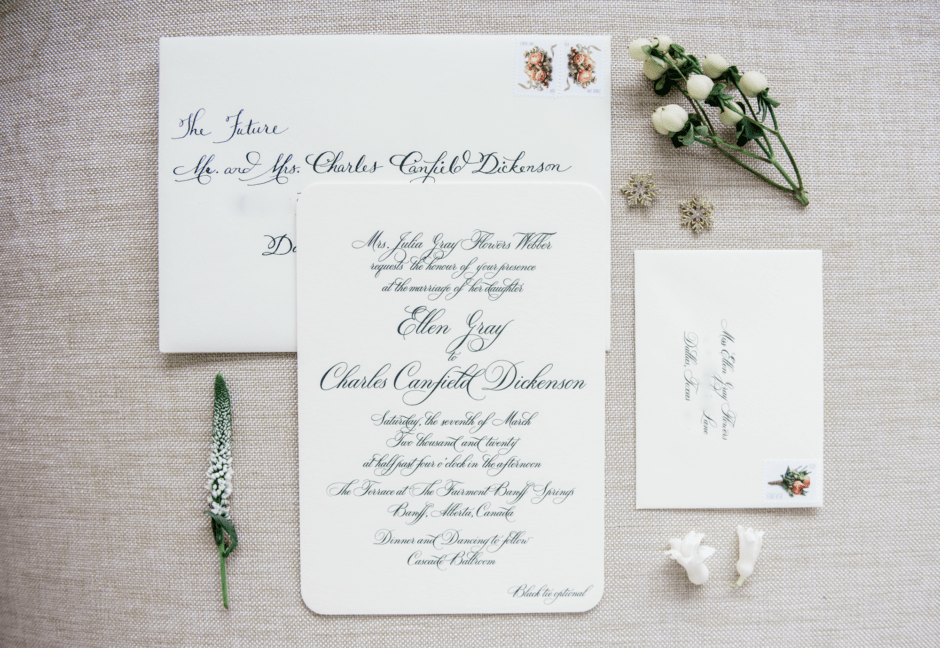 The Future
Mr. and Mrs. Charles Canfield Dickenson
Mrs. Julia Gray Flowers Webber
requests the honour of your presence
at the marriage of her daughter
Ellen Gray
to
Charles Canfield Dickenson
Saturday, the seventh of March
Two thousand and twenty
at half past four o'clock in the afternoon
The Terrace at The Fairmont Banff Springs
Banff, Alberta, Canada
Dinner and Dancing to follow
Cascade Ballroom
Black tie optional
Miss Ellen Gray Flowers
Lane
Dallas, Texas